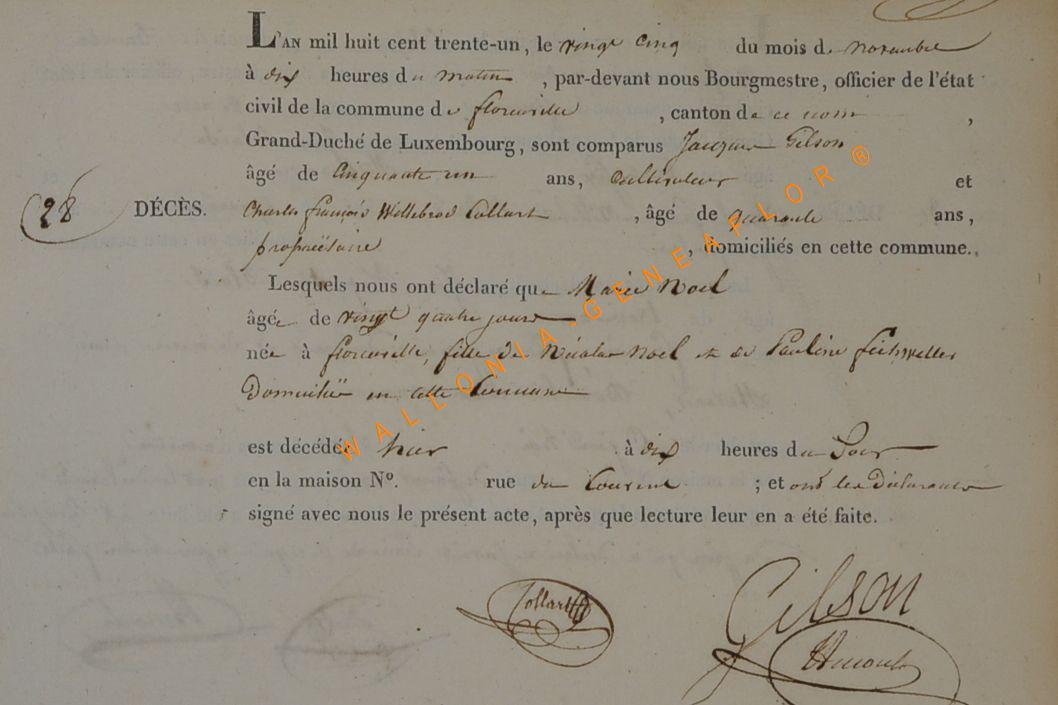 L'AN mil huit cent trente-un, le vingt cinq du mois de novembre
à dix heures du matin, par-devant nous Bourgmestre, officier de l'état
civil de la commune de florenville, canton de ce nom,
Grand-Duché de Luxembourg, sont comparus Jacques Gilson
âgé de Cinquante un ans, Cultivateur et
28 DÉCÈS. Charles françois Willebrod Collart, âgé de quarante ans,
propriétaire, domiciliés en cette commune.
Lesquels nous ont déclaré que Marie Noel
âgée de vingt quatre jours
née à florenville, fille de Nicolas Noel et de Pauline
Domiciliés en cette Commune
est décédée hier à dix heures du Soir
en la maison Nº. rue du; et ont les Déclarants
signé avec nous le présent acte, après que lecture leur en a été faite.
Collart Gilson
WALLONIA-GENEAFLOR ®